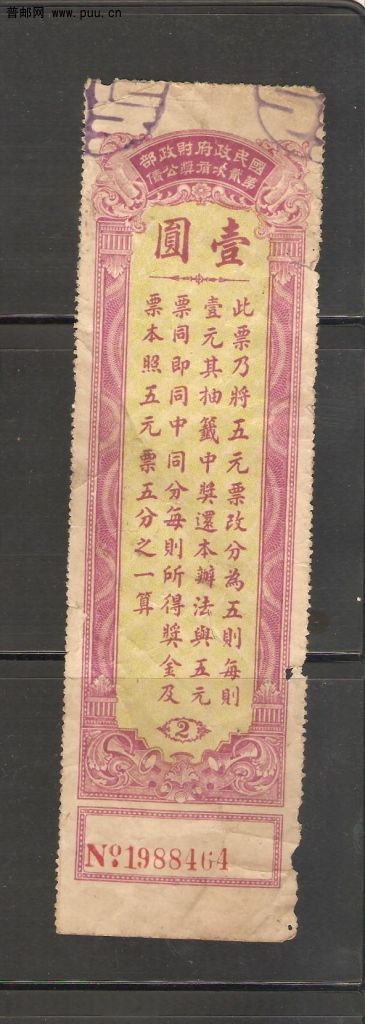 普邮网 www.puu.cn
國民政府財政部
第貳次有獎公債
壹圓
此票乃將五元票改分為五則每則
壹元其抽籤中獎還本辦法與五元
票同即同中同分每則所得獎金及
票本照五元票五分之一算
2
Nº1988464